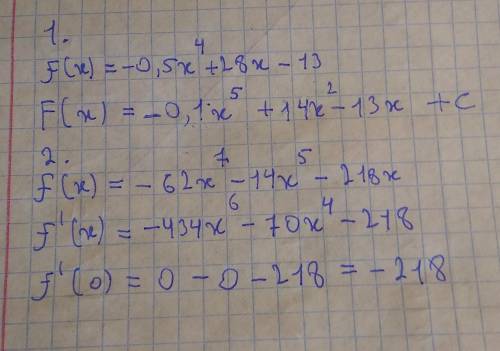 1.
f(x) = -0,5x⁴ + 28x - 13
F(x) = -0,1·x⁵ + 14x² - 13x + C
2.
f(x) = - 62x⁷ - 14x⁵ - 218x
f'(x) = -434x⁶ - 70x⁴ - 218
f'(0) = 0 - 0 - 218 = - 218